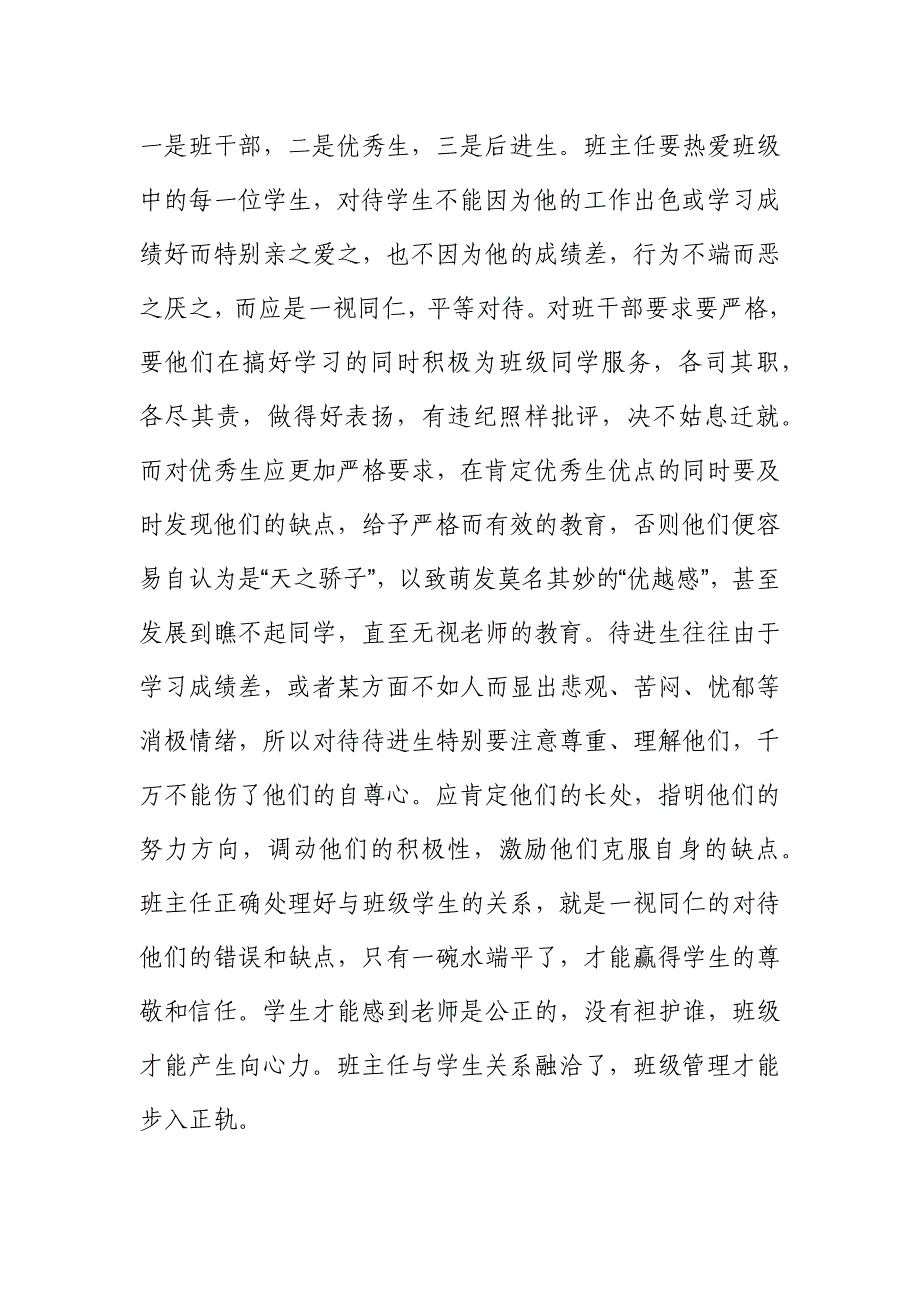 一是班干部，二是优秀生，三是后进生。班主任要热爱班级
中的每一位学生，对待学生不能因为他的工作出色或学习成
绩好而特别亲之爱之，也不因为他的成绩差，行为不端而恶
之厌之，而应是一视同仁，平等对待。对班干部要求要严格，
要他们在搞好学习的同时积极为班级同学服务，各司其职，
各尽其责，做得好表扬，有违纪照样批评，决不姑息迁就。
而对优秀生应更加严格要求，在肯定优秀生优点的同时要及
时发现他们的缺点，给予严格而有效的教育，否则他们便容
易自认为是“天之骄子”，以致萌发莫名其妙的“优越感”，甚至
发展到瞧不起同学，直至无视老师的教育。待进生往往由于
学习成绩差，或者某方面不如人而显出悲观、苦闷、忧郁等
消极情绪，所以对待待进生特别要注意尊重、理解他们，千
万不能伤了他们的自尊心。应肯定他们的长处，指明他们的
努力方向，调动他们的积极性，激励他们克服自身的缺点。
班主任正确处理好与班级学生的关系，就是一视同仁的对待
他们的错误和缺点，只有一碗水端平了，才能赢得学生的尊
敬和信任。学生才能感到老师是公正的，没有袒护谁，班级
才能产生向心力。班主任与学生关系融洽了，班级管理才能
步入正轨。